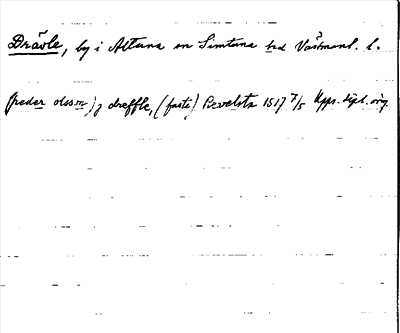 Drävle, by i Altuna sn Simtuna hd Västmanl. l.
(peder olsson) j dreffle, (faste) Revelsta 1517 7/5 Upps. dipl. orig.